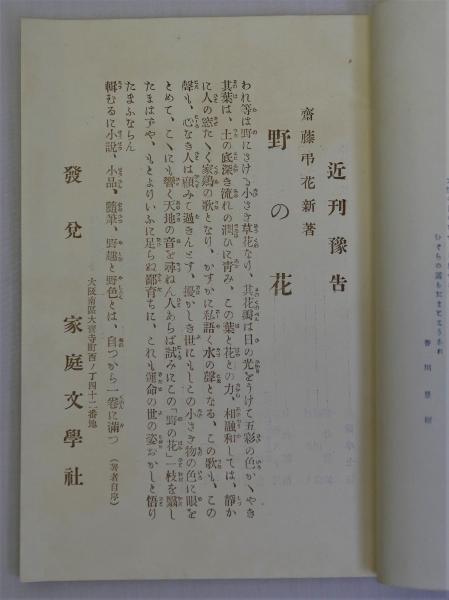 近刊豫告
齋藤弔花新著
野の花
われ等は野にさける小さき草花なり、其花瓣は日の光をうけて五彩の色かゞやき
其葉は、土の底深き流れの潤ひに靑み、この葉と花との力、相融和しては、靜か
に人の窓たゝく家鷄の歌となり、かすかに私語く水の聲となる、この歌も、この
聲も、心なき人は顧みて過ぎんとす、擾がしき世にもしこの小さき物の色に眼を
とめて、こゝにも響く天地の音を尋ねん人あらば試みにこの「野の花」一枝を翳し
たまはずや、もとよりいふに足らぬ鄙育ちに、これも運命の世の姿おかしと悟り
たまふならん
輯むるに小說、小品、隨筆、野趣と野色とは、自つから一卷に滿つ(著者自序)
大阪南區大寶寺町西ノ丁四十二番地
發兌 家庭文學社
香川景樹